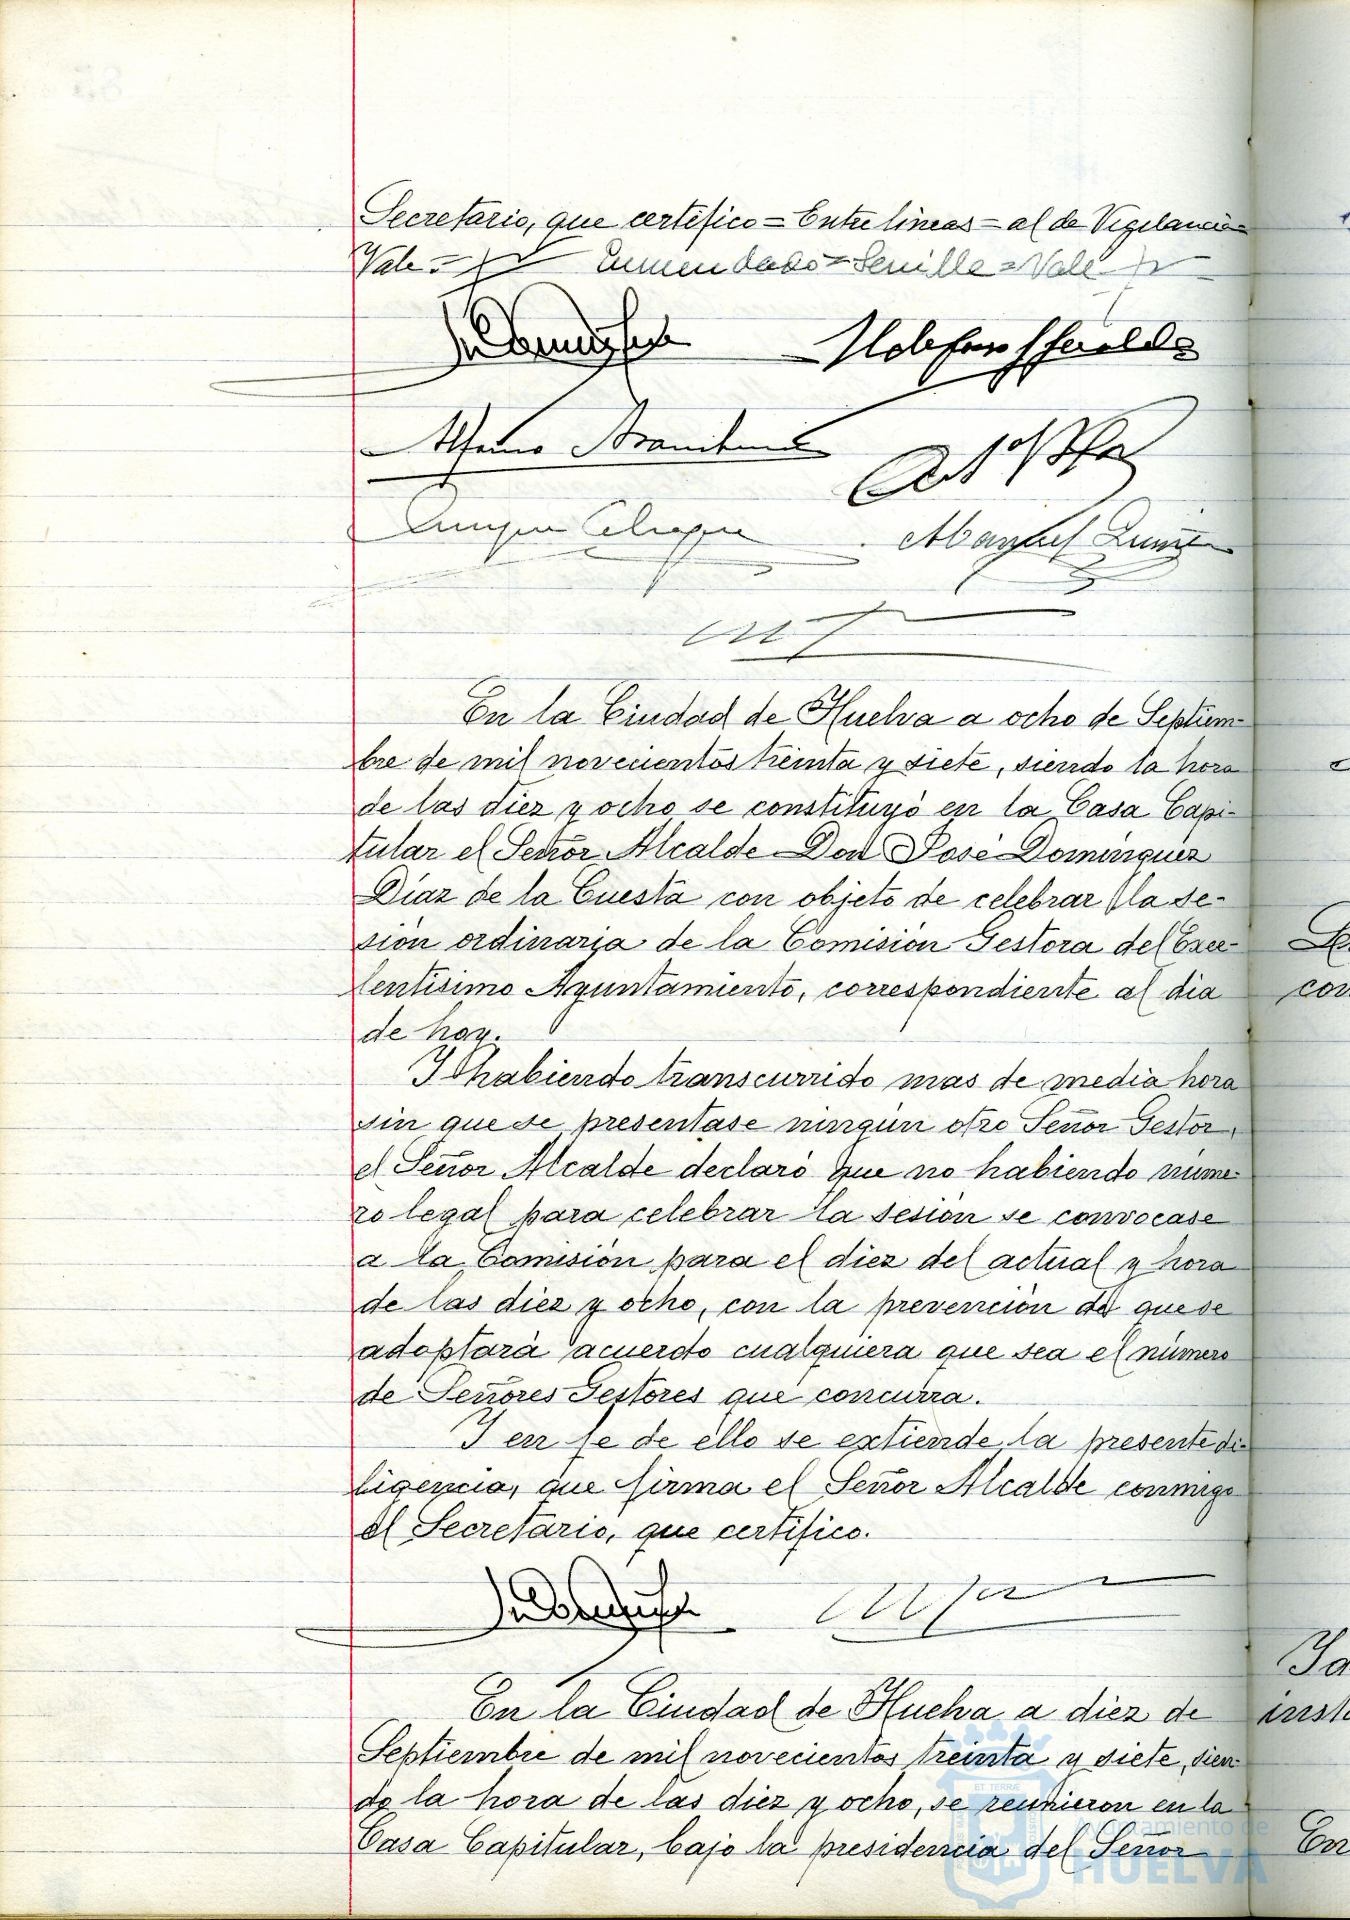 Secretario, que certifico = Entre lineas = al de Vigilancia =
Vale = Enmendado = Sevilla = Vale
Manuel
En la Ciudad de Huelva a ocho de Septiem-
bre de mil novecientos treinta y siete, siendo la hora
de las diez y ocho se constituyó en la Casa Capi-
tular el Señor Alcalde Don José Dominguez
Díaz de la Cuesta con objeto de celebrar la se-
sión ordinaria de la Comisión Gestora del Exce-
lentísimo Ayuntamiento, correspondiente al dia
de hoy.
Y habiendo transcurrido mas de media hora
sin que se presentase ningún otro Señor Gestor,
el Señor Alcalde declaró que no habiendo núme-
ro legal para celebrar la sesión se convocase
a la Comisión para el diez del actual y hora
de las diez y ocho, con la prevención de que se
adoptará acuerdo cualquiera que sea el número
de Señores Gestores que concurra.
Y en fe de ello se extiende la presente di-
ligencia, que firma el Señor Alcalde conmigo
el Secretario, que certifico.
En la Ciudad de Huelva a diez de
Septiembre de mil novecientos treinta y siete, sien-
do la hora de las diez y ocho, se reunieron en la
Casa Capitular, bajo la presidencia del Señor
Ayuntamiento de
HUELVA